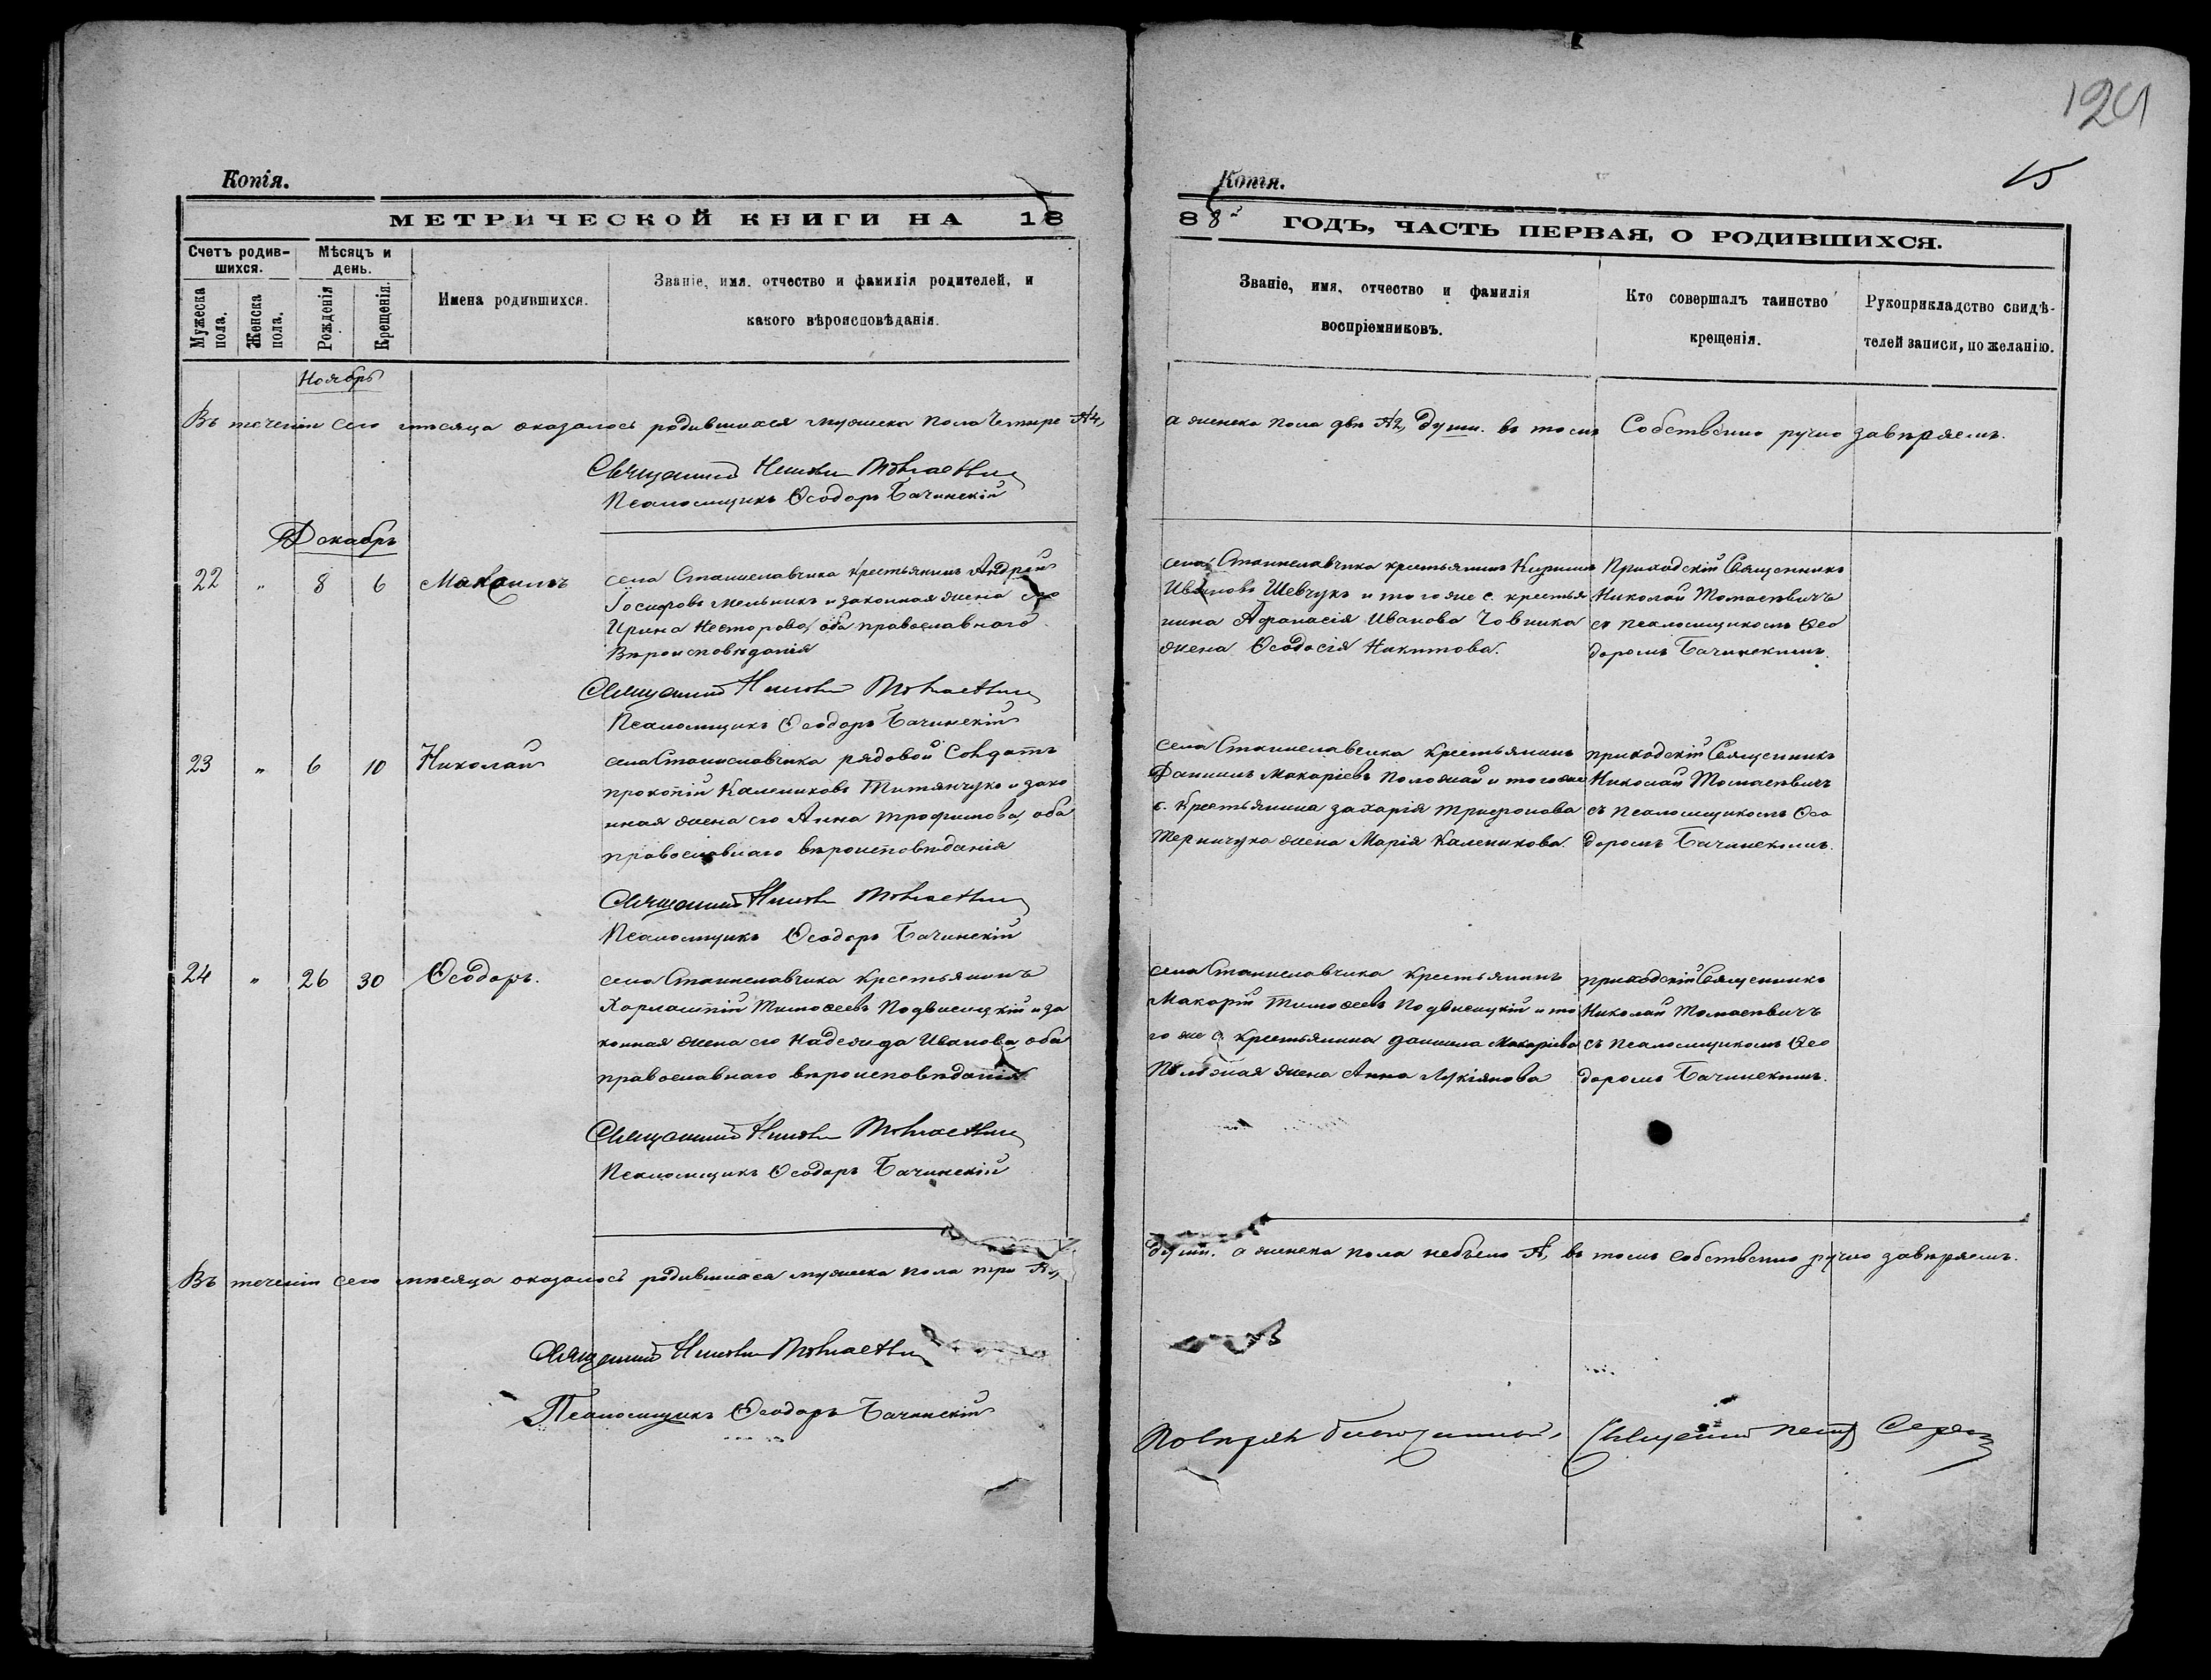 124
15
Копія.
МЕТРИЧЕСКОЙ КНИГИ НА 18
Счетъ родив-
шихся.
Мѣсяцъ и
день.
Мужеска
пола.
Женска
пола.
Рожденія
Крещенія.
Имена родившихся.
Званіе, имя, отчество и фамилія родителей, и
какого вѣроисповѣданія.
Ноябрь
Въ теченіи сего мѣсяца оказалось родившихся мужеска пола четыре №4,
Священникъ Николай
Псаломщикъ Ѳеодоръ Бачинскій
Декабрь
22 " 8 6 Михаилъ
села Станиславчика крестьянинъ Андрей
Іосифовъ Мельникъ и законная жена его
Ирина Несторова, оба православнаго
Вѣроисповѣданія
Священникъ Николай
Псаломщикъ Ѳеодоръ Бачинскій
23 " 6 10 Николай
села Станиславчика рядовой Солдатъ
прокопій Калениковъ Титянчукъ и зако
нная жена его Анна Трофимова, оба
православнаго вѣроисповѣданія
Священникъ Николай
Псаломщикъ Ѳеодоръ Бачинскій
24 " 26 30 Ѳеодоръ.
села Станиславчика крестьянинъ
Харлампій Тимоѳеевъ Подвисоцкій и за
конная жена его Надежда Иванова, оба
православнаго вѣроисповѣданія
Священникъ Николай
Псаломщикъ Ѳеодоръ Бачинскій
Въ теченіи сего мѣсяца оказалось родившихся мужеска пола три
Священникъ Николай
Псаломщикъ Ѳеодоръ Бачинскій
Копія.
88 ГОДЪ, ЧАСТЬ ПЕРВАЯ, О РОДИВШИХСЯ.
Званіе, имя, отчество и фамилія
воспріемниковъ.
Кто совершалъ таинство
крещенія.
Рукоприкладство свидѣ-
телей записи, по желанію.
а женска пола двѣ №2, души. въ томъ Собственно ручно завѣряемъ.
села Станиславчика крестьянинъ
Ивановъ Шевчукъ и того же с. крестья
нина Афанасія Иванова Човника
жена Ѳеодосія Никитова.
Приходскій Священникъ
Николай Томасевичъ
съ псаломщикомъ Ѳео
доромъ Бачинскимъ.
села Станиславчика крестьянинъ
Даніилъ Макаріевъ Положай и того же
с. Крестьянина захарія трифонова
жена Марія Каленикова.
приходскій Священникъ
Николай Томасевичъ
съ псаломщикомъ Ѳео
доромъ Бачинскимъ.
села Станиславчика крестьянинъ
Макарій Тимоѳеевъ Подвисоцкій и то
го же с. крестьянина даніила Макаріева
Положая жена Анна Лукіянова
приходскій Священникъ
Николай Томасевичъ
съ псаломщикомъ Ѳео
доромъ Бачинскимъ.
души. а женска пола небыло въ томъ собственно ручно завѣряемъ.
Повѣрялъ благочинный, Священникъ Петръ